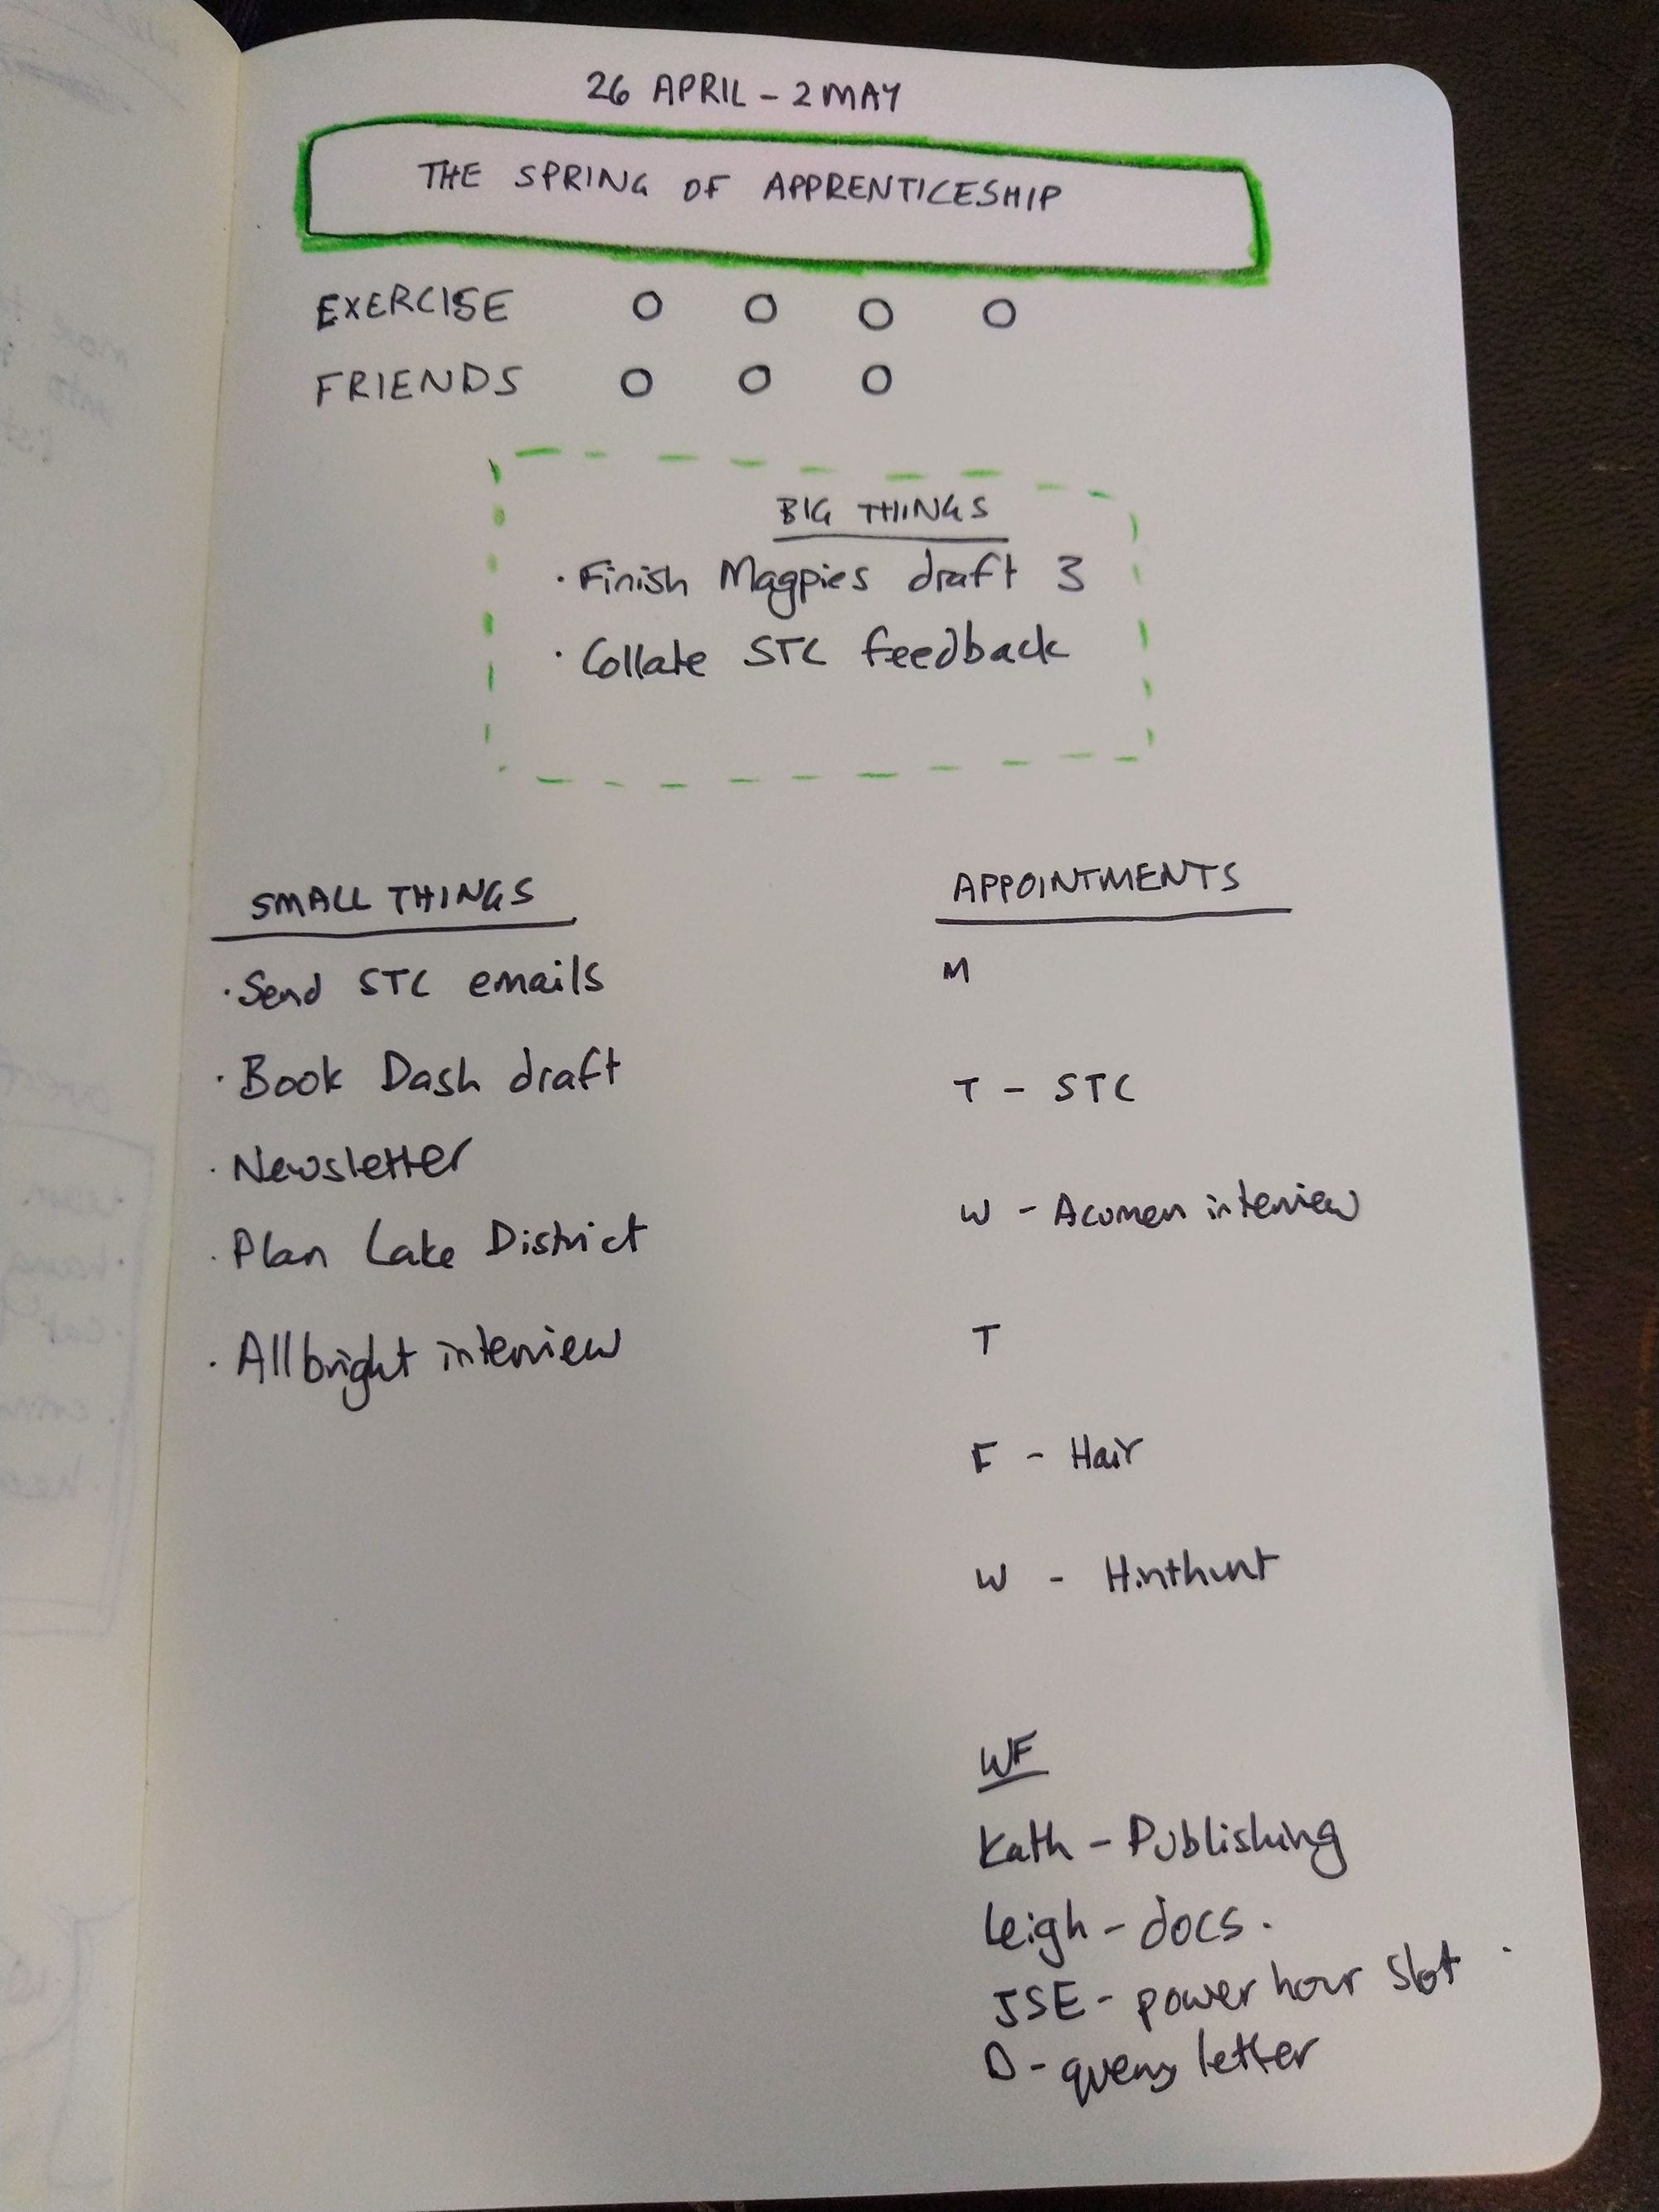 26 APRIL - 2 MAY
THE SPRING OF APPRENTICESHIP
EXERCISE O O O O
FRIENDS O O O
BIG THINGS
· Finish Magpies draft 3
· Collate STC feedback
SMALL THINGS
· Send STC emails
· Book Dash draft
· Newsletter
· Plan Lake District
· Allbright interview
APPOINTMENTS
M
T - STC
W - Acumen interview
T
F - Hair
W - Hinthunt
WF
Kath - Publishing
Leigh - docs.
JSE - power hour slot
D - query letter